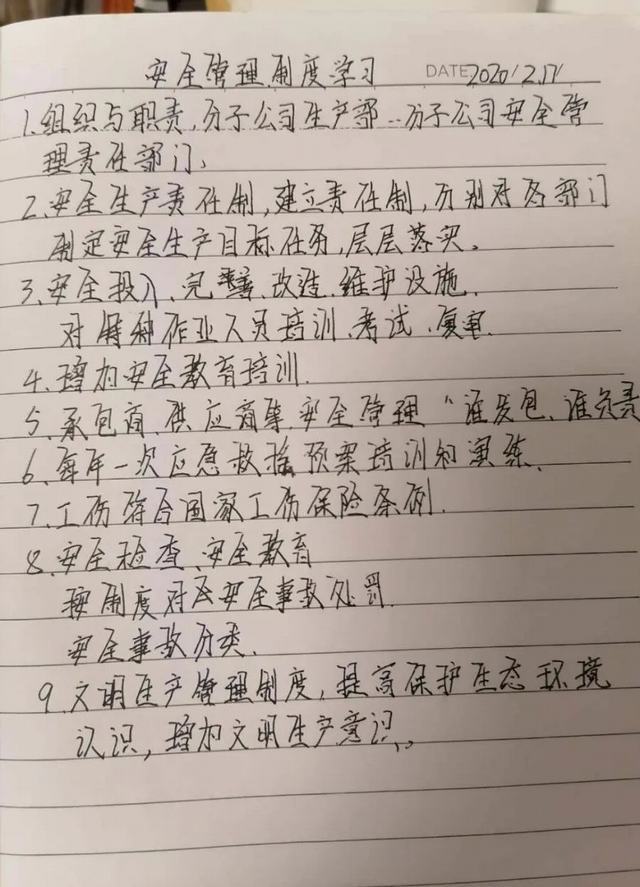 安全管理制度学习 DATE 2020/2.17/
1.组织与职责,分子公司生产部..分子公司安全管
理责任部门、
2.安全生产责任制,建立责任制,分别对各部门
制定安全生产目标任务,层层落实。
3.安全投入、完善、改造、维护设施.
对特种作业人员培训、考试、复审.
4.增加安全教育培训.
5.承包商、供应商等安全管理“谁发包、谁负责
6.每年一次应急救援预案培训和演练.
7.工伤符合国家工伤保险条例.
8.安全检查、安全教育
按制度对安全事故处罚.
安全事故分类.
9.文明生产管理制度,提高保护生态环境
认识,增加文明生产意识。